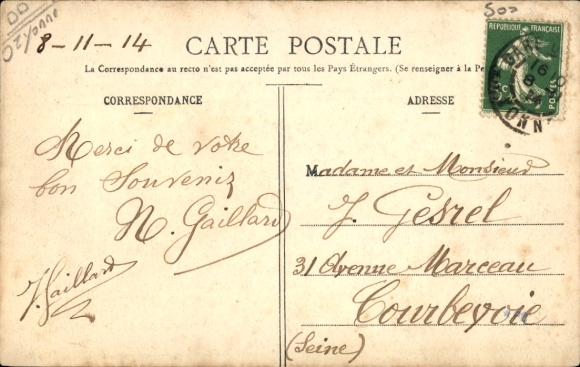 8-11-14
CARTE POSTALE
La Correspondance au recto n'est pas acceptée par tous les Pays Étrangers. (Se renseigner à la
CORRESPONDANCE
ADRESSE
REPUBLIQUE FRANÇAISE
POSTES
Merci de votre
bon Souvenir
N. Gaillard
Gaillard
Madame et Monsieur
J. Gesrel
31 Avenue Marceau
Courbevoie
(Seine)